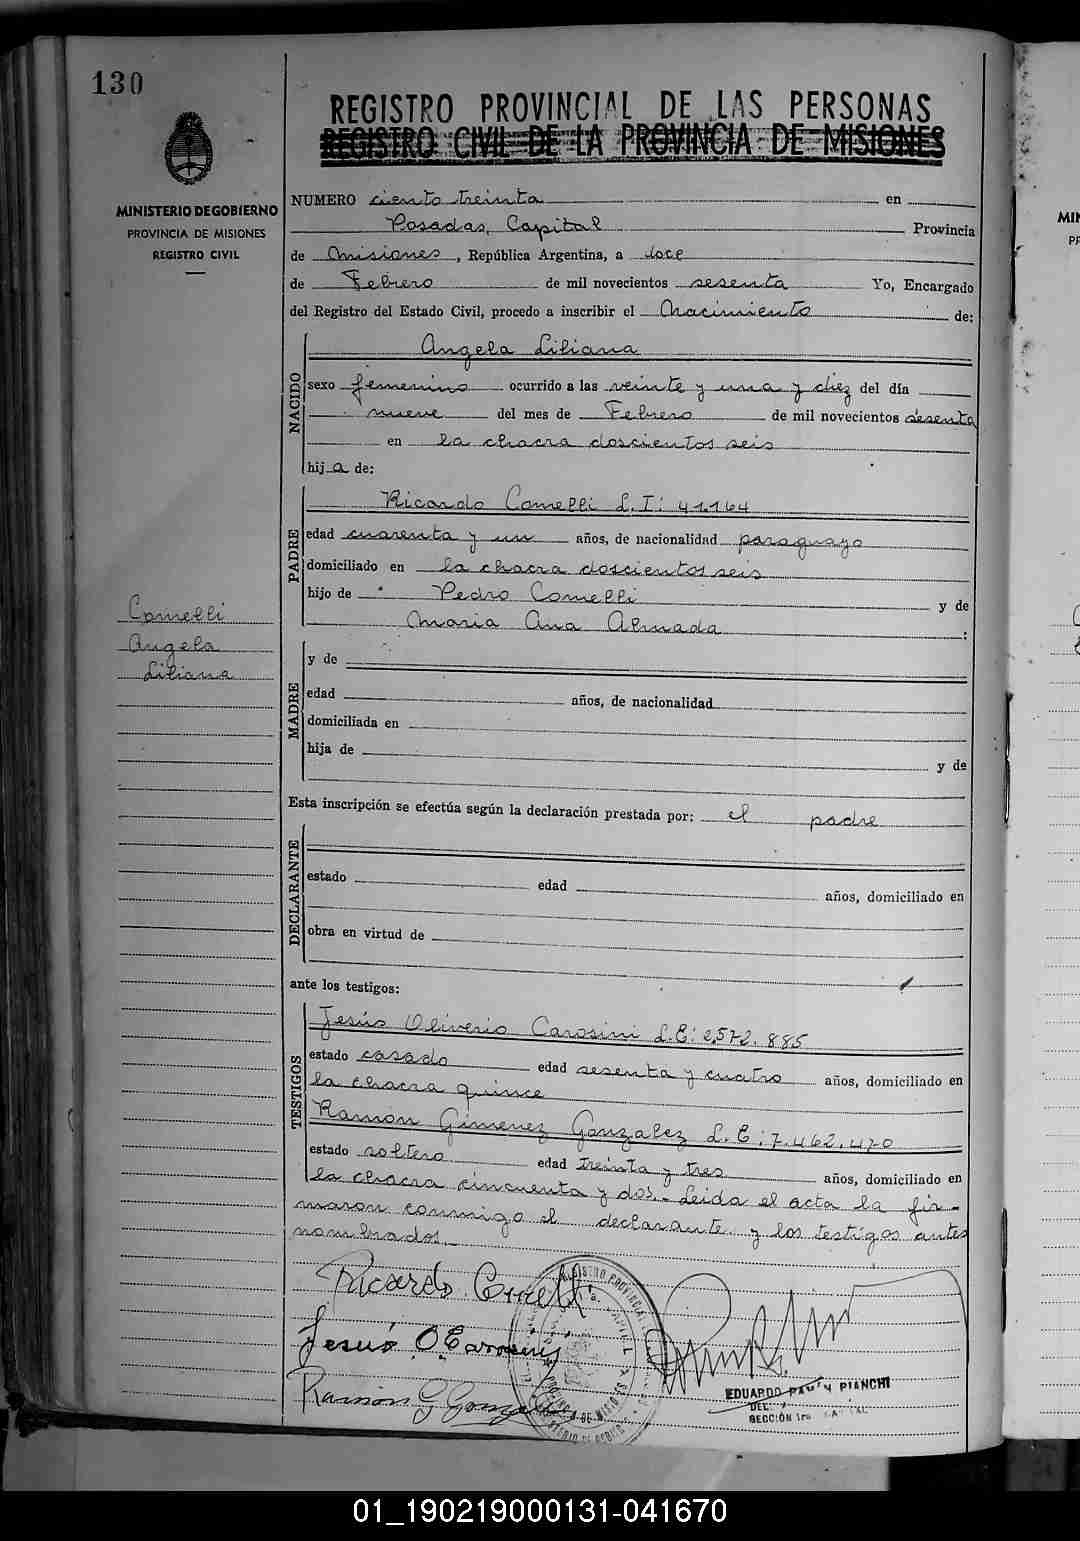 130
MINISTERIO DE GOBIERNO
PROVINCIA DE MISIONES
REGISTRO CIVIL
REGISTRO PROVINCIAL DE LAS PERSONAS
REGISTRO CIVIL DE LA PROVINCIA DE MISIONES
NUMERO ciento treinta en
Posadas, Capital Provincia
de Misiones, República Argentina, a doce
de Febrero de mil novecientos sesenta Yo, Encargado
del Registro del Estado Civil, procedo a inscribir el Nacimiento de:
NACIDO
Angela Liliana
sexo femenino ocurrido a las veinte y una y diez del día
nueve del mes de Febrero de mil novecientos sesenta
en la chacra doscientos seis
hija de:
PADRE
Ricardo Comelli L.I: 41.164
edad cuarenta y un años, de nacionalidad paraguayo
domiciliado en la chacra doscientos seis
hijo de Pedro Comelli y de
Maria Ana Almada :
Comelli
Angela
Liliana
MADRE
y de
edad años, de nacionalidad
domiciliada en
hija de y de
Esta inscripción se efectúa según la declaración prestada por: el padre
DECLARANTE
estado edad años, domiciliado en
obra en virtud de
ante los testigos:
TESTIGOS
Jesús Oliverio Carosini L.E: 2.572.885
estado casado edad sesenta y cuatro años, domiciliado en
la chacra quince
Ramón Gimenez Gonzalez L.E: 7.462.470
estado soltero edad treinta y tres años, domiciliado en
la chacra cincuenta y dos.- Leida el acta la fir-
maron conmigo el declarante y los testigos antes
nombrados.
Ricardo Comelli
Jesús O Carosini
Ramón G Gonzalez
REGISTRO PROVINCIAL
EDUARDO RAMÓN PIANCHI
SECCIÓN 1ra CAPITAL
01_190219000131-041670